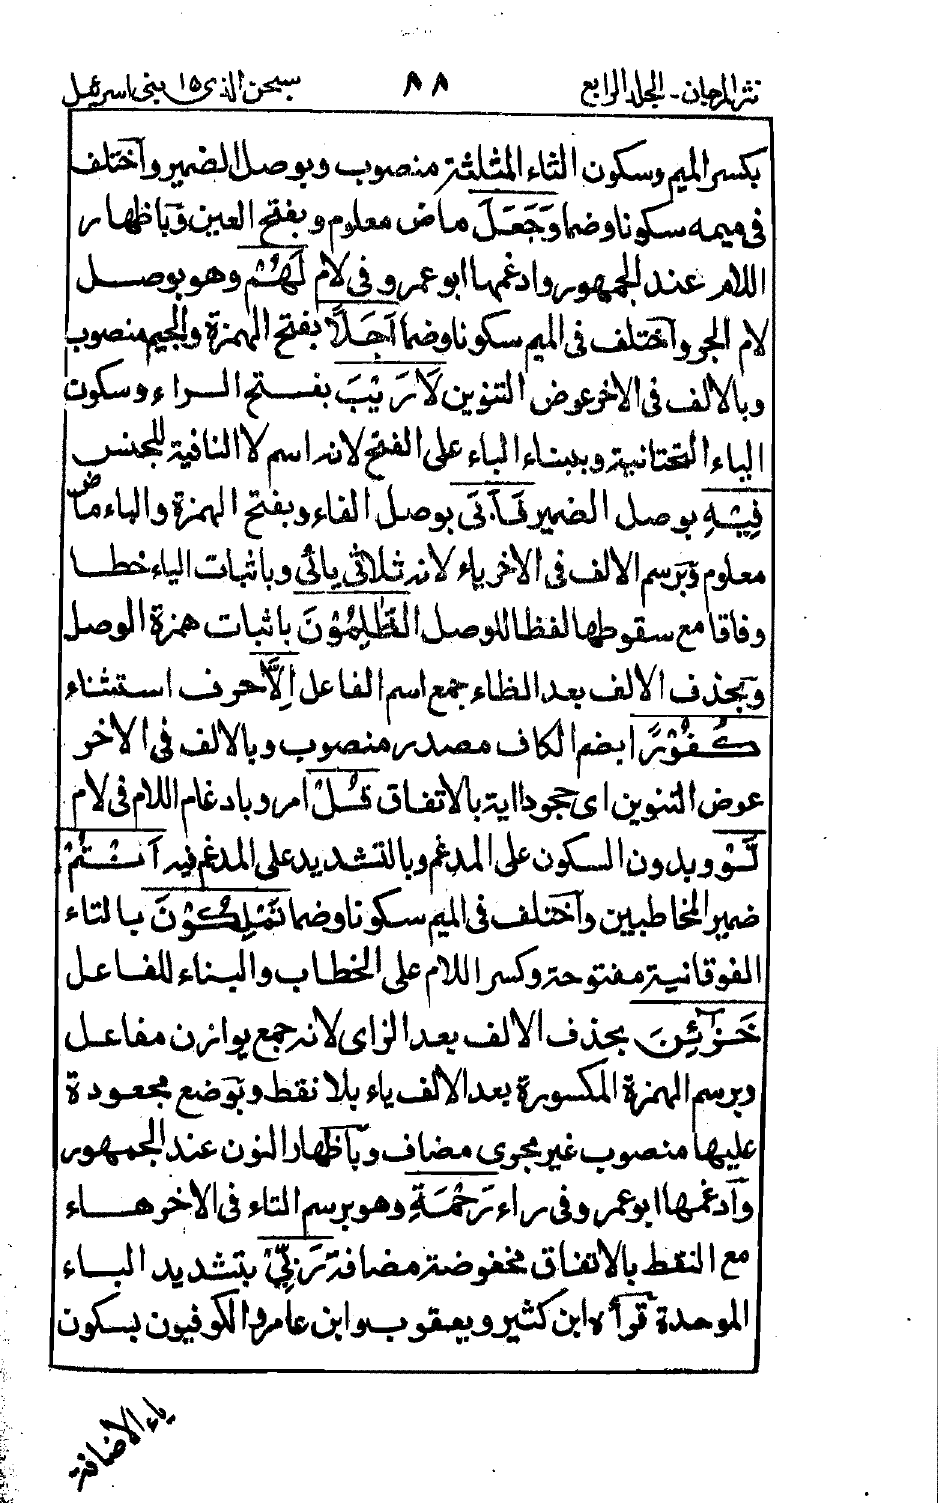 نثر المرجان - الجلد الرابع ٨٨ سبحن الذى ١٥ بنى اسرءيل
بكسر الميم وسكون الثاء المثلثة منصوب وبوصل الضمير واختلف
فى ميمه سكونا وضما وَجَعَلَ ماض معلوم وبفتح العين وباظهار
اللام عند الجمهور وادغمها ابو عمرو فى لام لَهُمْ وهو بوصل
لام الجر واختلف فى الميم سكونا وضما اَجَلًا بفتح الهمزة والجيم منصوب
وبالالف فى الاخر عوض التنوين لَا رَيْبَ بفتح الراء وسكون
الياء التحتانية وببناء الباء على الفتح لانه اسم لا النافية للجنس
فِيْهِ بوصل الضمير فَاَبَى بوصل الفاء وبفتح الهمزة والباء ماض
معلوم وبرسم الالف فى الاخر ياء لانه ثلاثى يائى وباثبات الياء خطا
وفاقا مع سقوطها لفظا للوصل الظّٰلِمُوْنَ باثبات همزة الوصل
وبحذف الالف بعد الظاء جمع اسم الفاعل اِلَّا حرف استثناء
كُفُوْرًا بضم الكاف مصدر منصوب وبالالف فى الاخر
عوض التنوين اى جحودا اية بالاتفاق قُلْ امر وبادغام اللام فى لام
لَّوْ وبدون السكون على المدغم وبالتشديد على المدغم فيه اَنْتُمْ
ضمير المخاطبين واختلف فى الميم سكونا وضما تَمْلِكُوْنَ بالتاء
الفوقانية مفتوحة وكسر اللام على الخطاب والبناء للفاعل
خَزَآئِنَ بحذف الالف بعد الزاى لانه جمع يوازن مفاعل
وبرسم الهمزة المكسورة بعد الالف ياء بلا نقط وبوضع مجعودة
عليها منصوب غير مجرى مضاف وباظهار النون عند الجمهور
وادغمها ابو عمرو فى راء رَحْمَةِ وهو برسم التاء فى الاخر هاء
مع النقط بالاتفاق مخفوضة مضافة رَبِّيْ بتشديد الباء
الموحدة قرأه ابن كثير ويعقوب وابن عامر والكوفيون بسكون
ياء الاضافة